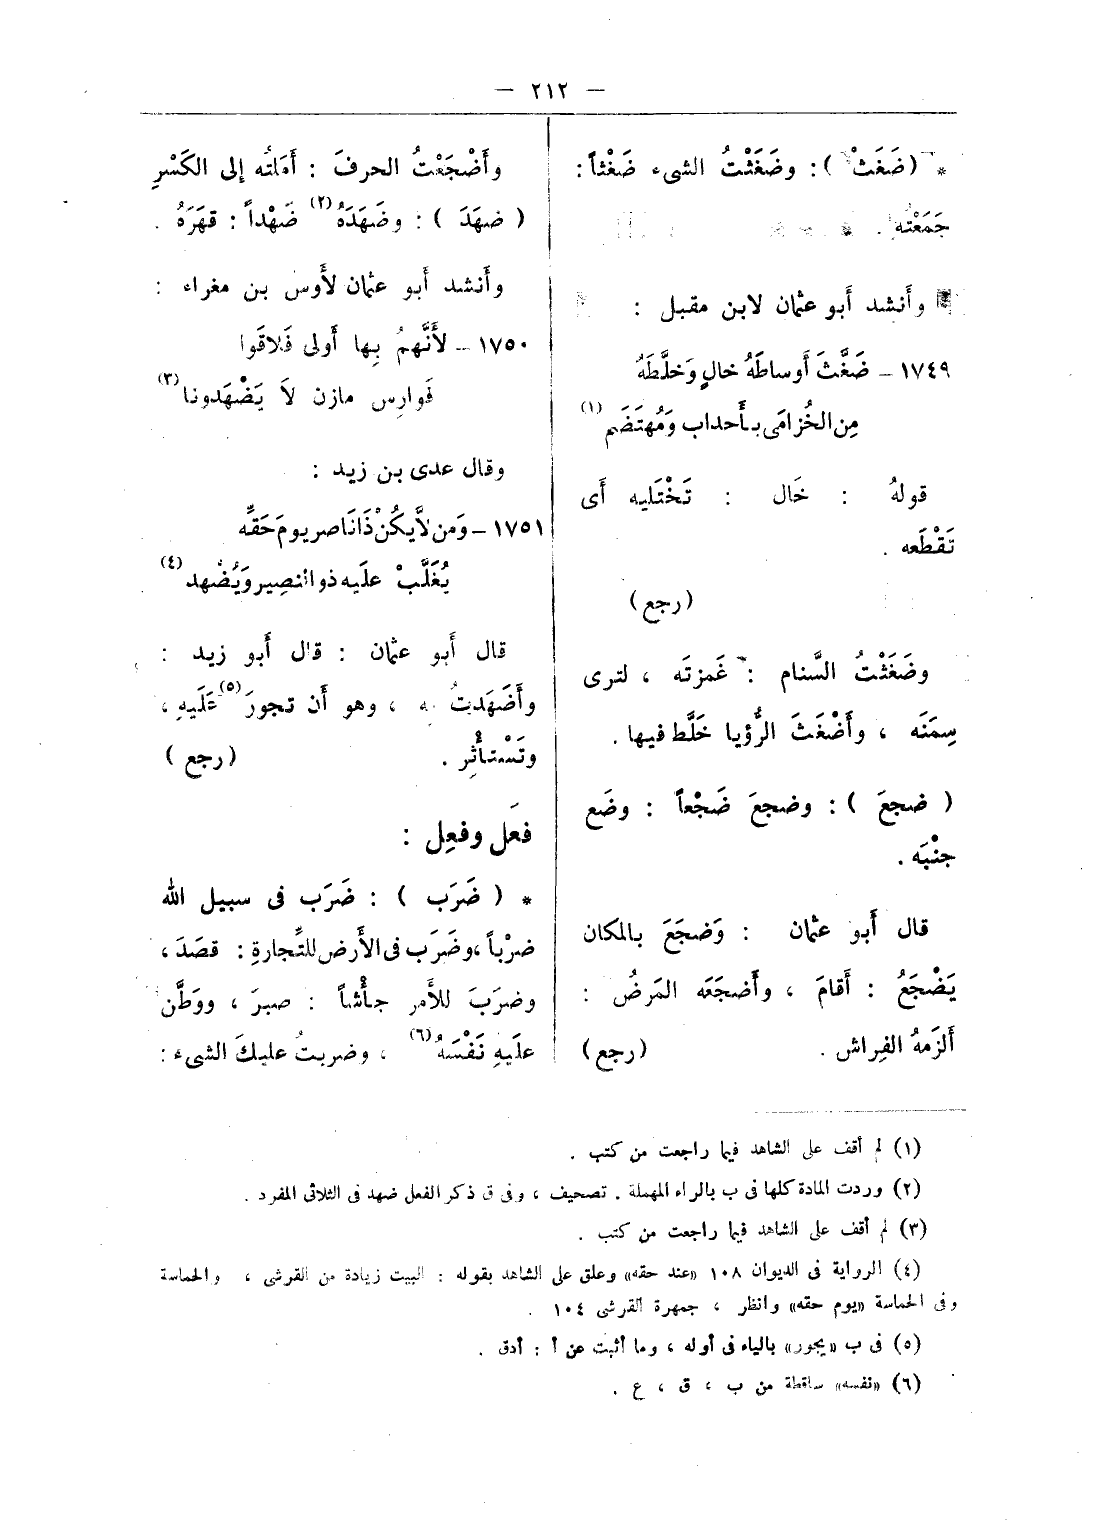 — ٢١٢ —
* (ضَغَثَ): وضَغَثْتُ الشيء ضَغْثاً:
جَمَعْتُه.
وأَنشد أَبو عثمان لابن مقبل :
١٧٤٩ – ضَغَّثَ أَوساطَهُ خالٍ وَخلَّطَهُ
مِن الخُزامَى بأَحداب وَمُهتَضَم (١)
قولهُ : خَال : تَخْتَليه أَى
تَقْطَعه .
(رجع)
وضَغَثْتُ السَّنام : غَمزتَه ، لترى
سِمَنَه ، وأَضْغَثَ الرُّؤيا خَلَّط فيها.
( ضجعَ ) : وضجعَ ضَجْعاً : وضَع
جنْبَه .
قال أَبو عثمان : وَضجَعَ بالمكان
يَضْجَعُ : أَقامَ ، وأَضجَعَه المَرضُ :
أَلزَمهُ الفِراش . (رجع)
وأَضْجَعْتُ الحرفَ : أَمَلتُه إلى الكَسْرِ
( ضهَدَ ) : وضَهَدَهُ (٢) ضَهْداً : قهَرَهُ .
وأَنشد أَبو عثمان لأَوس بن مغراء :
١٧٥٠ – لأَنَّهمُ بِها أَولى فَلاقَوا
فَوارِس مازن لاَ يَضْهَدونا (٣)
وقال عدى بن زيد :
١٧٥١ – وَمن لاَّ يكُنْ ذَا نَاصر يومَ حَقَّه
يُغَلَّبْ علَيه ذو النصِير وَيُضْهد (٤)
قال أَبو عثمان : قال أَبو زيد :
وأَضهَدتُ به ، وهو أَن تجورَ (٥) عَلَيهِ ،
وتَسْتأْثِر . (رجع)
فعَل وفعِل :
* ( ضَرَب ) : ضَرَب فى سبيل الله
ضرْباً ، وضَرَب فى الأَرض للتِّجارةِ : قصَدَ ،
وضرَبَ للأَمر جأْشاً : صبرَ ، ووَطَّن
علَيهِ نَفْسَهُ (٦) ، وضربتُ عليكَ الشىء :
(١) لم أقف على الشاهد فيما راجعت من كتب .
(٢) وردت المادة كلها فى ب بالراء المهملة . تصحيف ، وفى ق ذكر الفعل ضهد فى الثلاثى المفرد .
(٣) لم أقف على الشاهد فيما راجعت من كتب .
(٤) الرواية فى الديوان ١٠٨ «عند حقه» وعلق على الشاهد بقوله : البيت زيادة من القرشى ، والحماسة
وفى الحماسة «يوم حقه» وانظر ، جمهرة القرشى ١٠٤ .
(٥) فى ب «يجور» بالياء فى أوله ، وما أثبت عن أ : أدق .
(٦) «نفسه» ساقطة من ب ، ق ، ع .